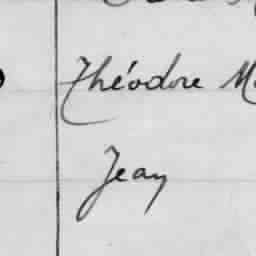 Théodore
Jean